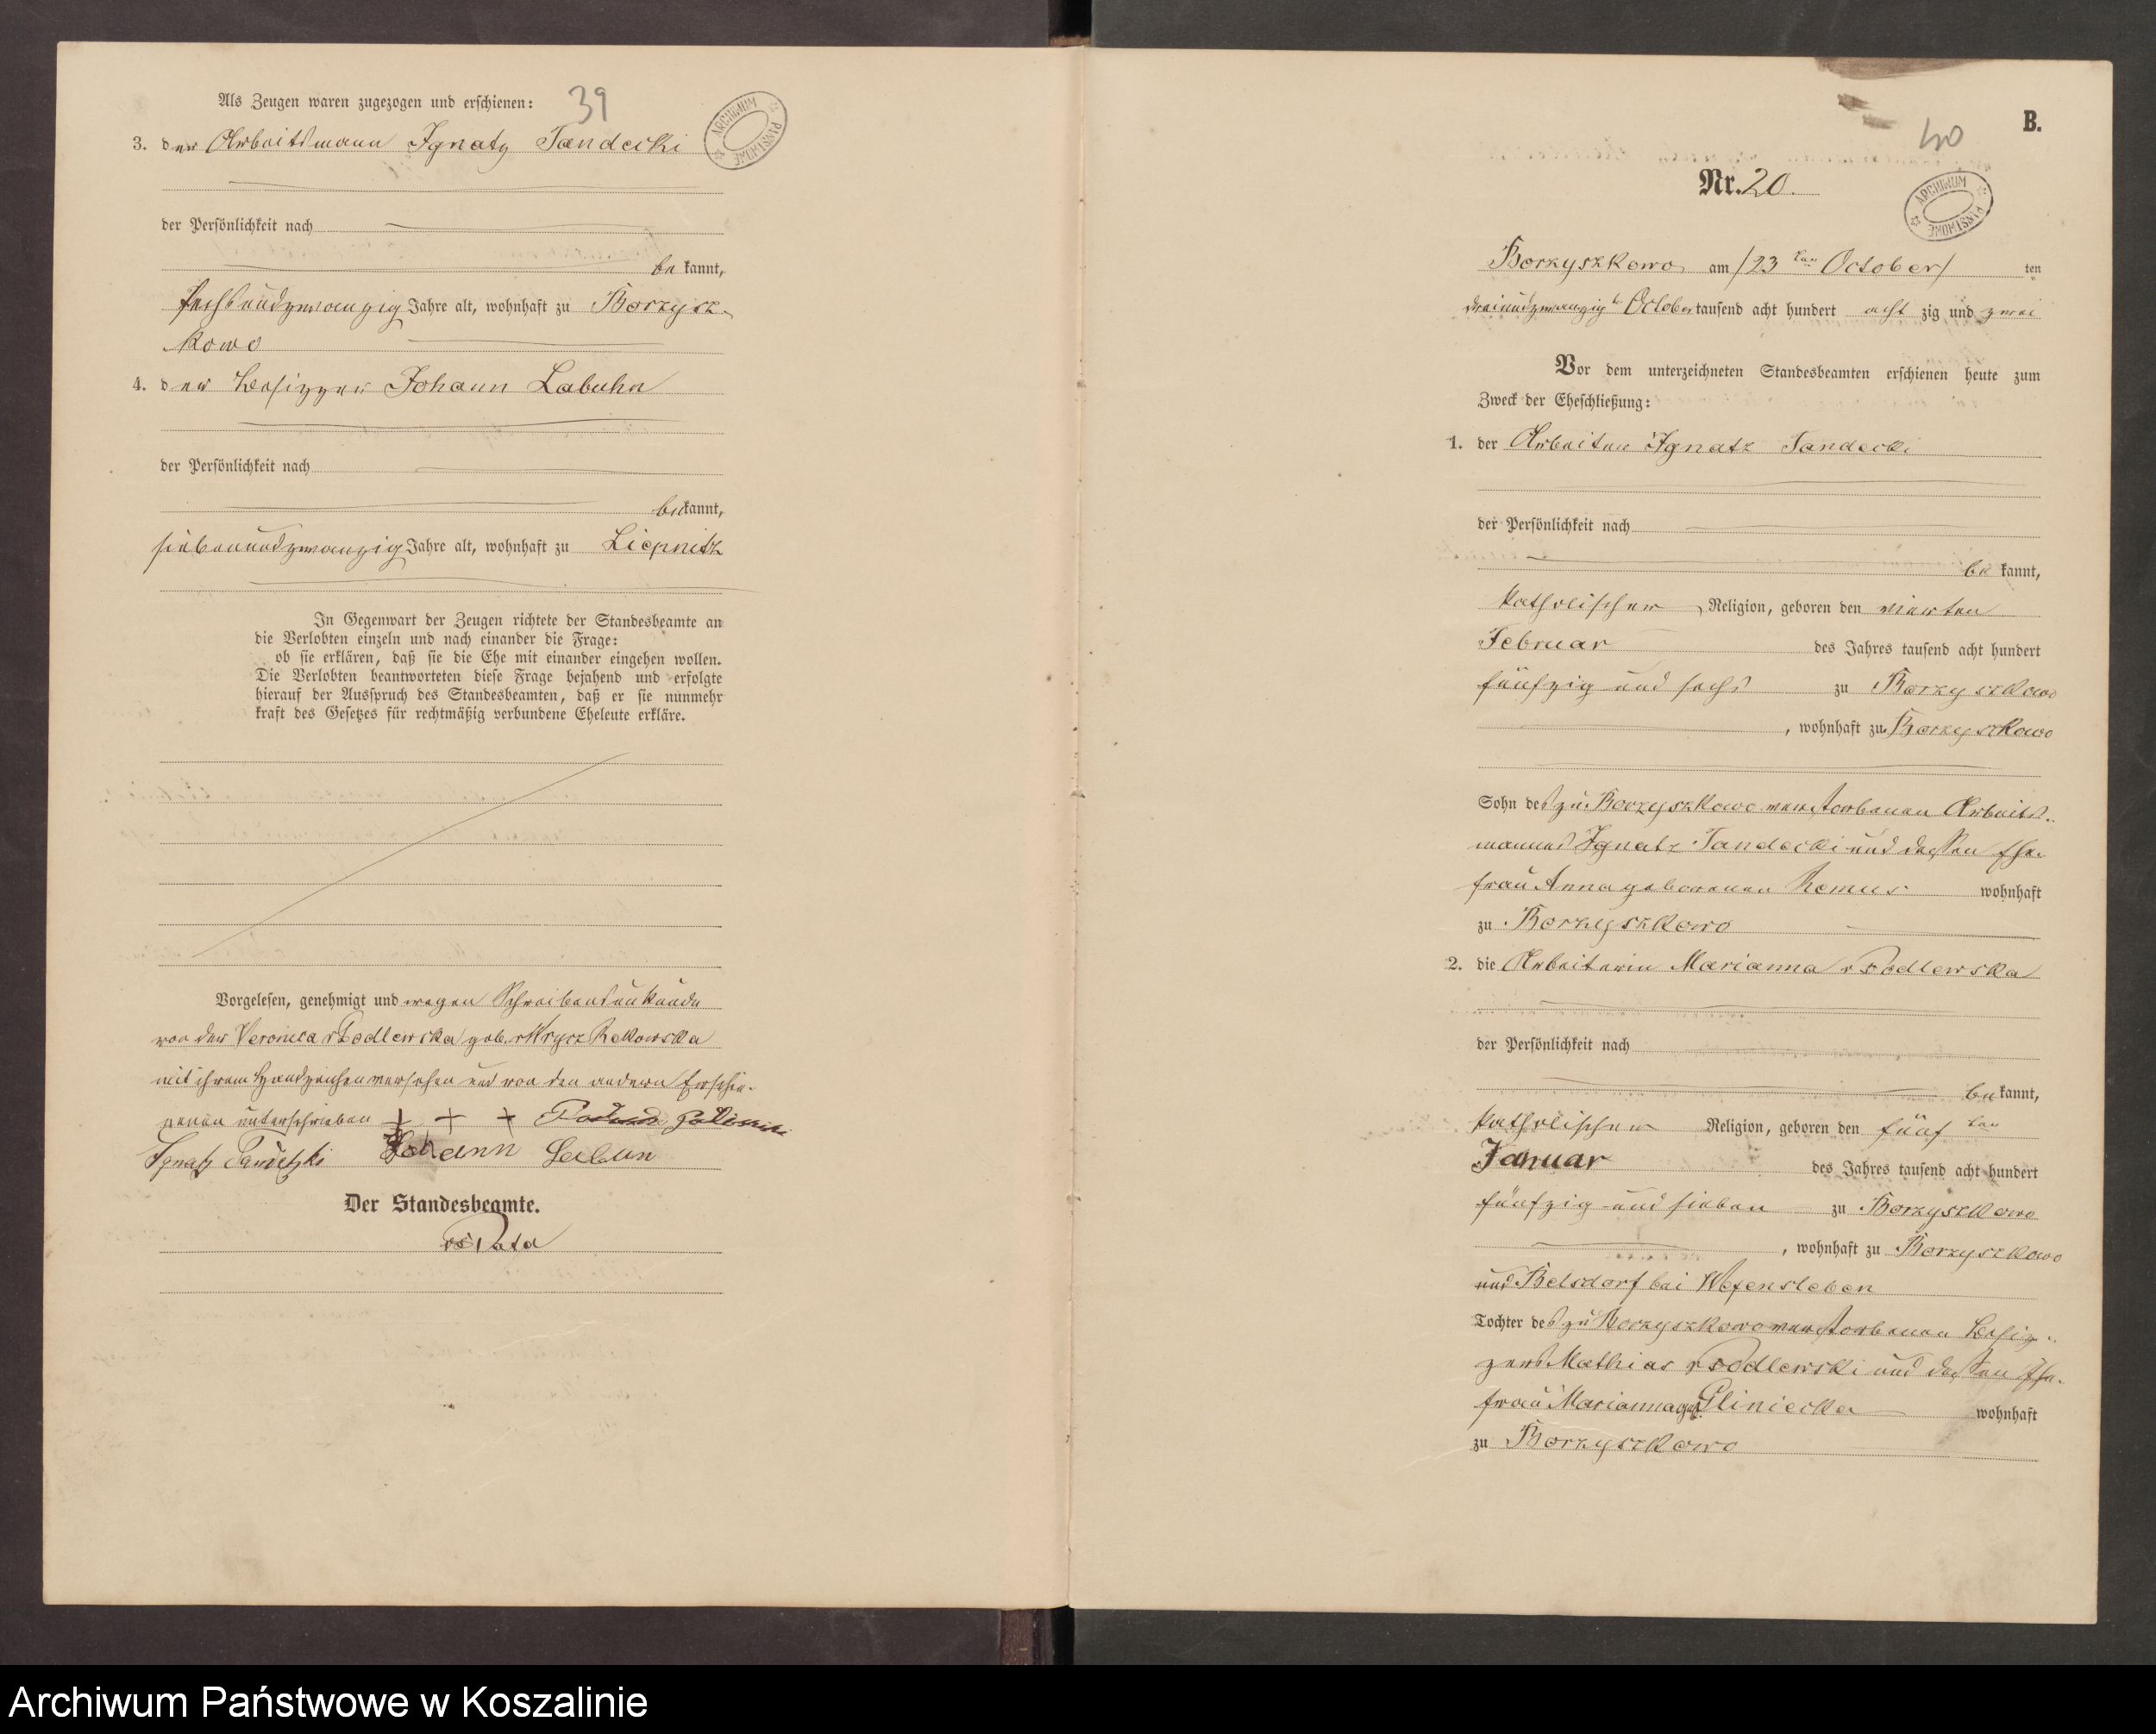 Als Zeugen waren zugezogen und erschienen:
39
ARCHIWUM PAŃSTWOWE
3. der Arbeitsmann Ignatz Tandecki
der Persönlichkeit nach
be kannt,
sechsundzwanzig Jahre alt, wohnhaft zu Borzysz-
kowo
4. der Besitzer Johann Labuhn
der Persönlichkeit nach
bekannt,
siebenundzwanzig Jahre alt, wohnhaft zu Liepnitz
In Gegenwart der Zeugen richtete der Standesbeamte an
die Verlobten einzeln und nach einander die Frage:
ob sie erklären, daß sie die Ehe mit einander eingehen wollen.
Die Verlobten beantworteten diese Frage bejahend und erfolgte
hierauf der Ausspruch des Standesbeamten, daß er sie nunmehr
kraft des Gesetzes für rechtmäßig verbundene Eheleute erkläre.
Vorgelesen, genehmigt und wegen Schreibensunkunde
von der Veronica Podlewska geb. Rekowska
mit ihrem Handzeichen versehen und von den andern Erschie-
nenen unterschrieben + + +
Ignatz Johann
Der Standesbeamte.
B.
40
Nr. 20.
ARCHIWUM PAŃSTWOWE
Borzyszkowo am /23 ten October/ ten
dreiundzwanzig October tausend acht hundert acht zig und zwei
Vor dem unterzeichneten Standesbeamten erschienen heute zum
Zweck der Eheschließung:
1. der Arbeiter Ignatz Tandecki
der Persönlichkeit nach
be kannt,
katholischer Religion, geboren den vierten
Februar des Jahres tausend acht hundert
fünfzig und sechs zu Borzyszkowo
, wohnhaft zu Borzyszkowo
Sohn des zu Borzyszkowo verstorbenen Arbeits-
mannes Ignatz Tandecki und dessen Ehe-
frau Anna geborenen Remus wohnhaft
zu Borzyszkowo
2. die Arbeiterin Marianna Podlewska
der Persönlichkeit nach
bekannt,
katholischer Religion, geboren den fünf ten
Januar des Jahres tausend acht hundert
fünfzig und sieben zu Borzyszkowo
, wohnhaft zu Borzyszkowo
und Belsdorf bei Wefensleben
Tochter des zu Borzyszkowo verstorbenen Besit-
zers Mathias Podlewski und dessen Ehe-
frau Marianna geb. Gliniecka wohnhaft
zu Borzyszkowo
Archiwum Państwowe w Koszalinie